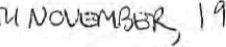 NOVEMBER, 19